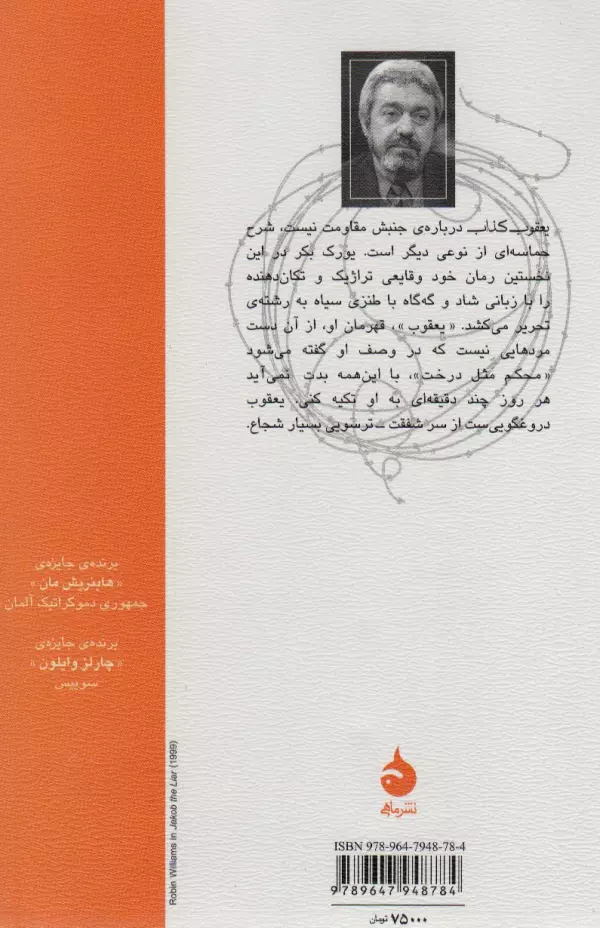 یعقوب کذاب درباره‌ی جنبش مقاومت نیست، شرح
حماسه‌ای از نوعی دیگر است. یورک بکر در این
نخستین رمان خود وقایعی تراژیک و تکان‌دهنده
را با زبانی شاد و گه‌گاه با طنزی سیاه به رشته‌ی
تحریر می‌کشد. «یعقوب»، قهرمان او، از آن دست
مردهایی نیست که در وصف او گفته می‌شود
«محکم مثل درخت»، با این‌همه بدت نمی‌آید
هر روز چند دقیقه‌ای به او تکیه کنی. یعقوب
دروغگویی‌ست از سر شفقت ـ ترسویی بسیار شجاع.
برنده‌ی جایزه‌ی
«هاینریش مان»
جمهوری دموکراتیک آلمان
برنده‌ی جایزه‌ی
«چارلز وایلون»
سوییس
Robin Williams in Jakob the Liar (1999)
نشرماهی
ISBN 978-964-7948-78-4
9 789647 948784
۷۵۰۰۰ تومان